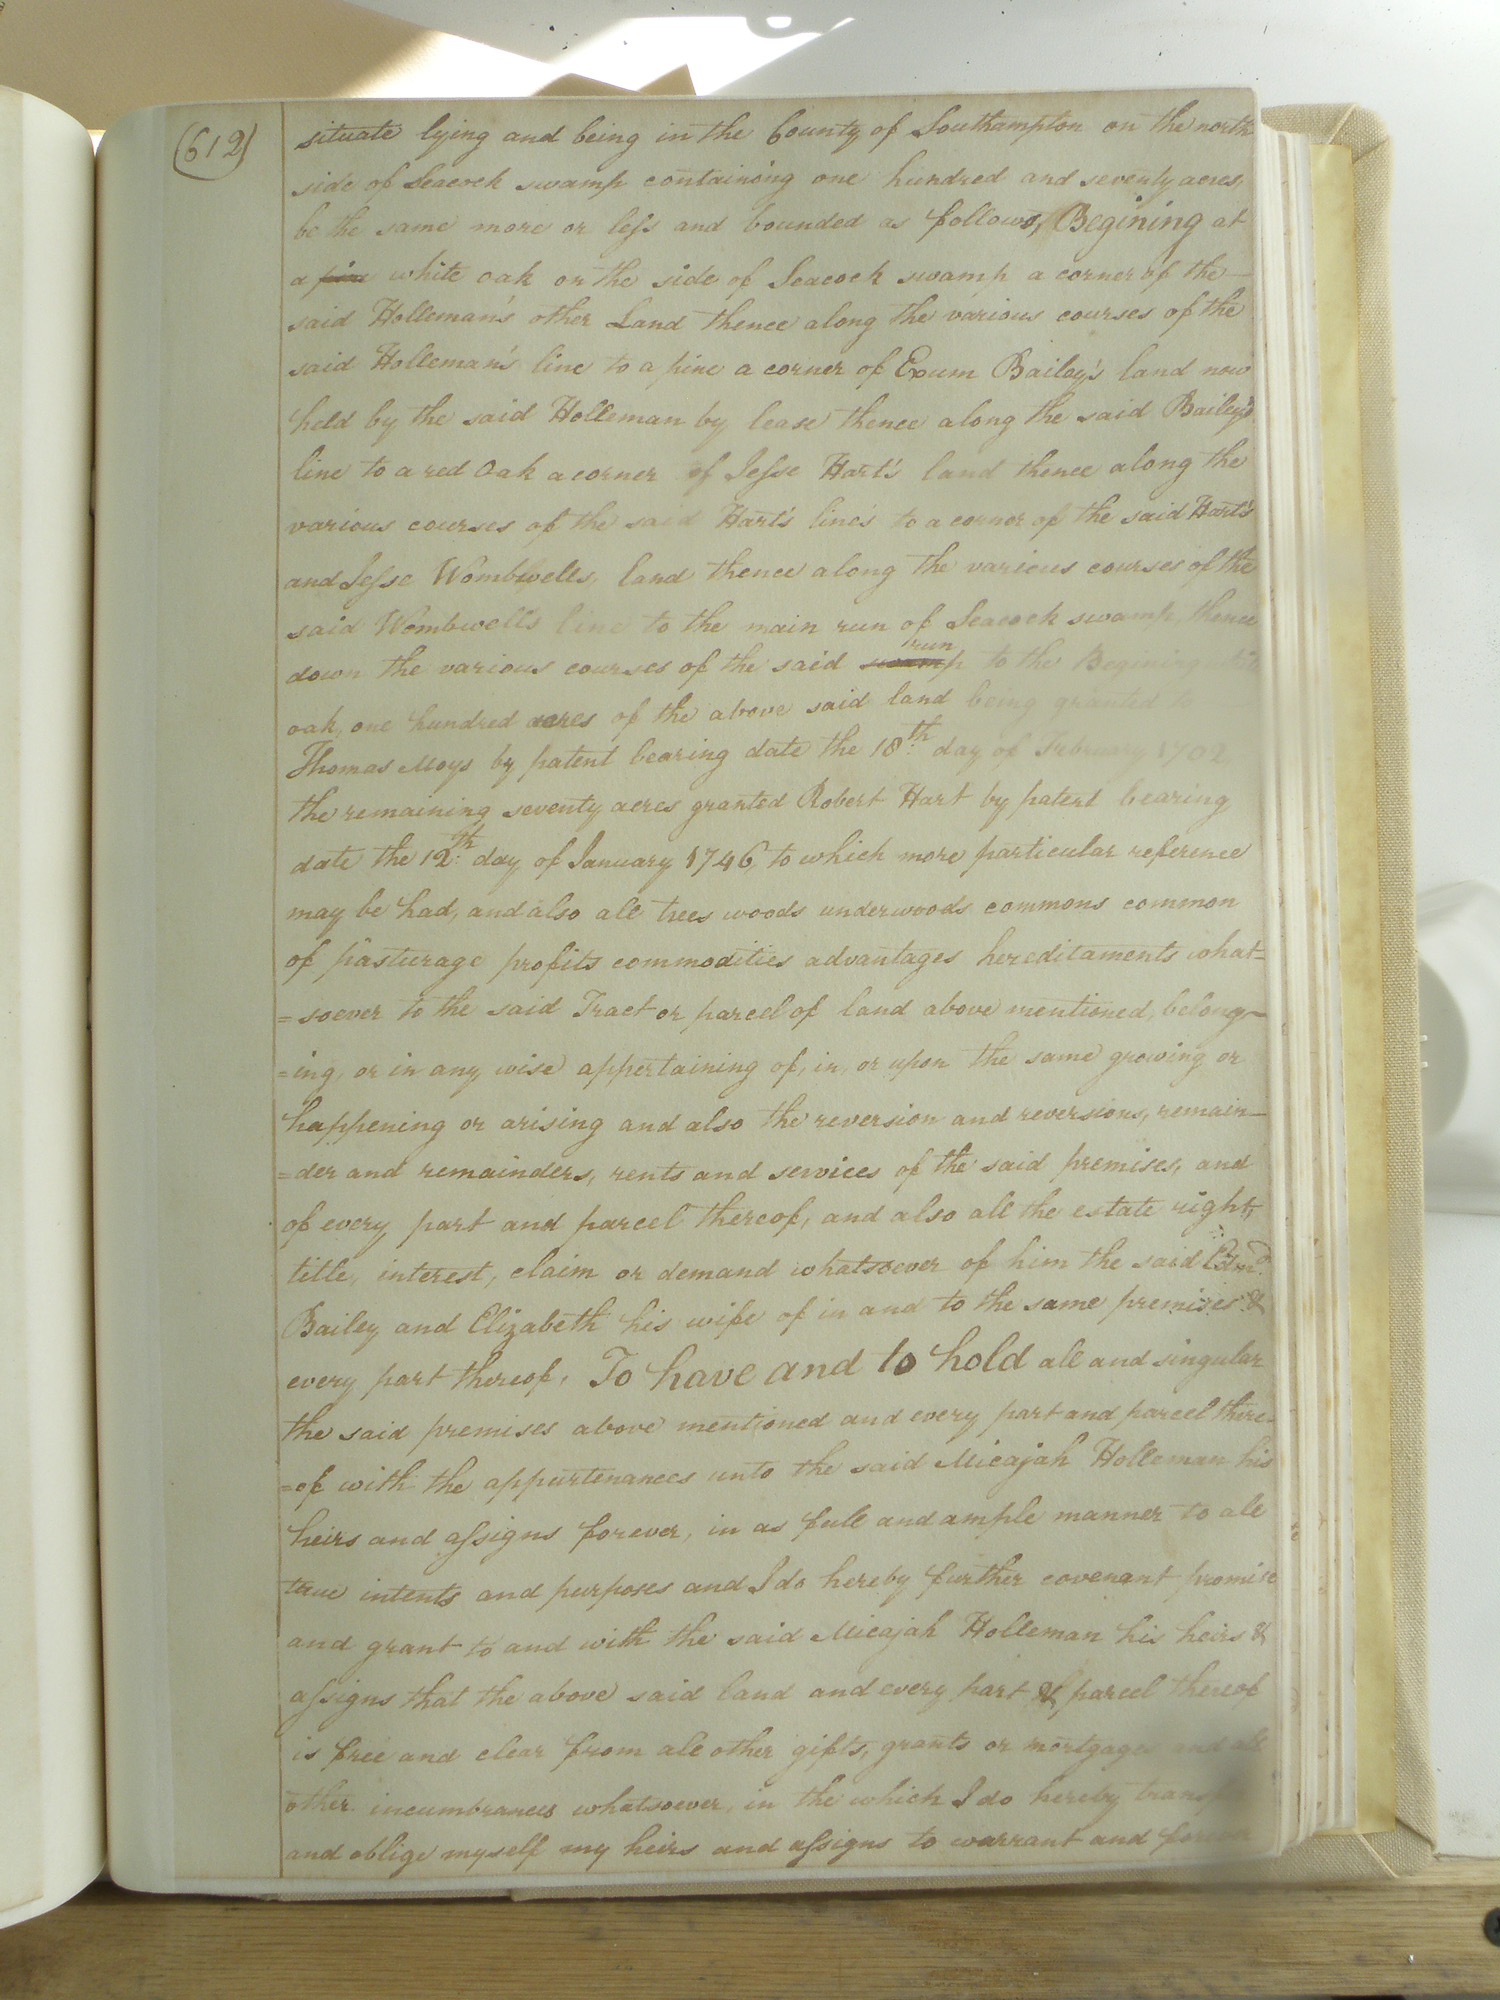 (612)
situate lying and being in the County of Southampton on the north
side of Seacock swamp containing one hundred and seventy acres,
be the same more or less and bounded as follows, Begining at
a pine white oak on the side of Seacock swamp a corner of the
said Holleman's other Land thence along the various courses of the
said Holleman's line to a pine a corner of Exum Bailey's land now
held by the said Holleman by lease thence along the said Bailey's
line to a red Oak a corner of Jesse Hart's land thence along the
various courses of the said Hart's line's to a corner of the said Hart's
and Jesse Wombwells, land thence along the various courses of the
said Wombwell's line to the main run of Seacock swamp, thence
run
down the various courses of the said swamp to the Begining
oak, one hundred acres of the above said land being granted to
Thomas Moys by patent bearing date the 18th day of February 1702
the remaining seventy acres granted Robert Hart by patent bearing
date the 12th day of January 1746, to which more particular reference
may be had, and also all trees woods underwoods commons common
of pasturage profits commodities advantages hereditaments what=
=soever to the said Tract or parcel of land above mentioned, belong-
=ing, or in any wise appertaining of, in, or upon the same growing or
happening or arising and also the reversion and reversions, remain-
=der and remainders, rents and services of the said premises, and
of every part and parcel thereof, and also all the estate right,
title, interest, claim or demand whatsoever of him the said Edmd
Bailey and Elizabeth his wife of in and to the same premises &
every part thereof, To have and to hold all and singular
the said premises above mentioned and every part and parcel there-
=of with the appurtenances unto the said Micajah Holleman his
heirs and assigns forever, in as full and ample manner to all
true intents and purposes and I do hereby further covenant promise
and grant to and with the said Micajah Holleman his heirs &
assigns that the above said land and every part & parcel thereof
is free and clear from all other gifts, grants or mortgages and all
other incumbrances whatsoever, in the which I do hereby
and oblige myself my heirs and assigns to warrant and forever